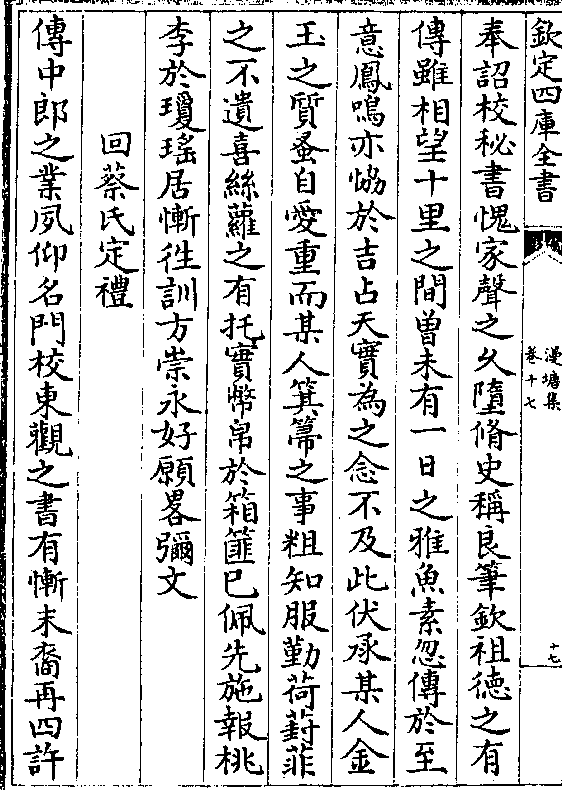 欽定四庫全書
漫塘集
卷十七
十七
奉詔校秘書愧家聲之乆墮脩史稱良筆欽祖徳之有
傳雖相望十里之間曽未有一日之雅魚素忽傳於至
意鳳鳴亦恊於吉占天實為之念不及此伏承某人金
玉之質蚤自愛重而某人箕箒之事粗知服勤荷葑菲
之不遺喜絲蘿之有托實幣帛於箱篚已佩先施報桃
李於瓊瑶居慚徃訓方崇永好願畧彌文
回蔡氏定禮
傳中郎之業夙仰名門校東觀之書有慚末裔再四許